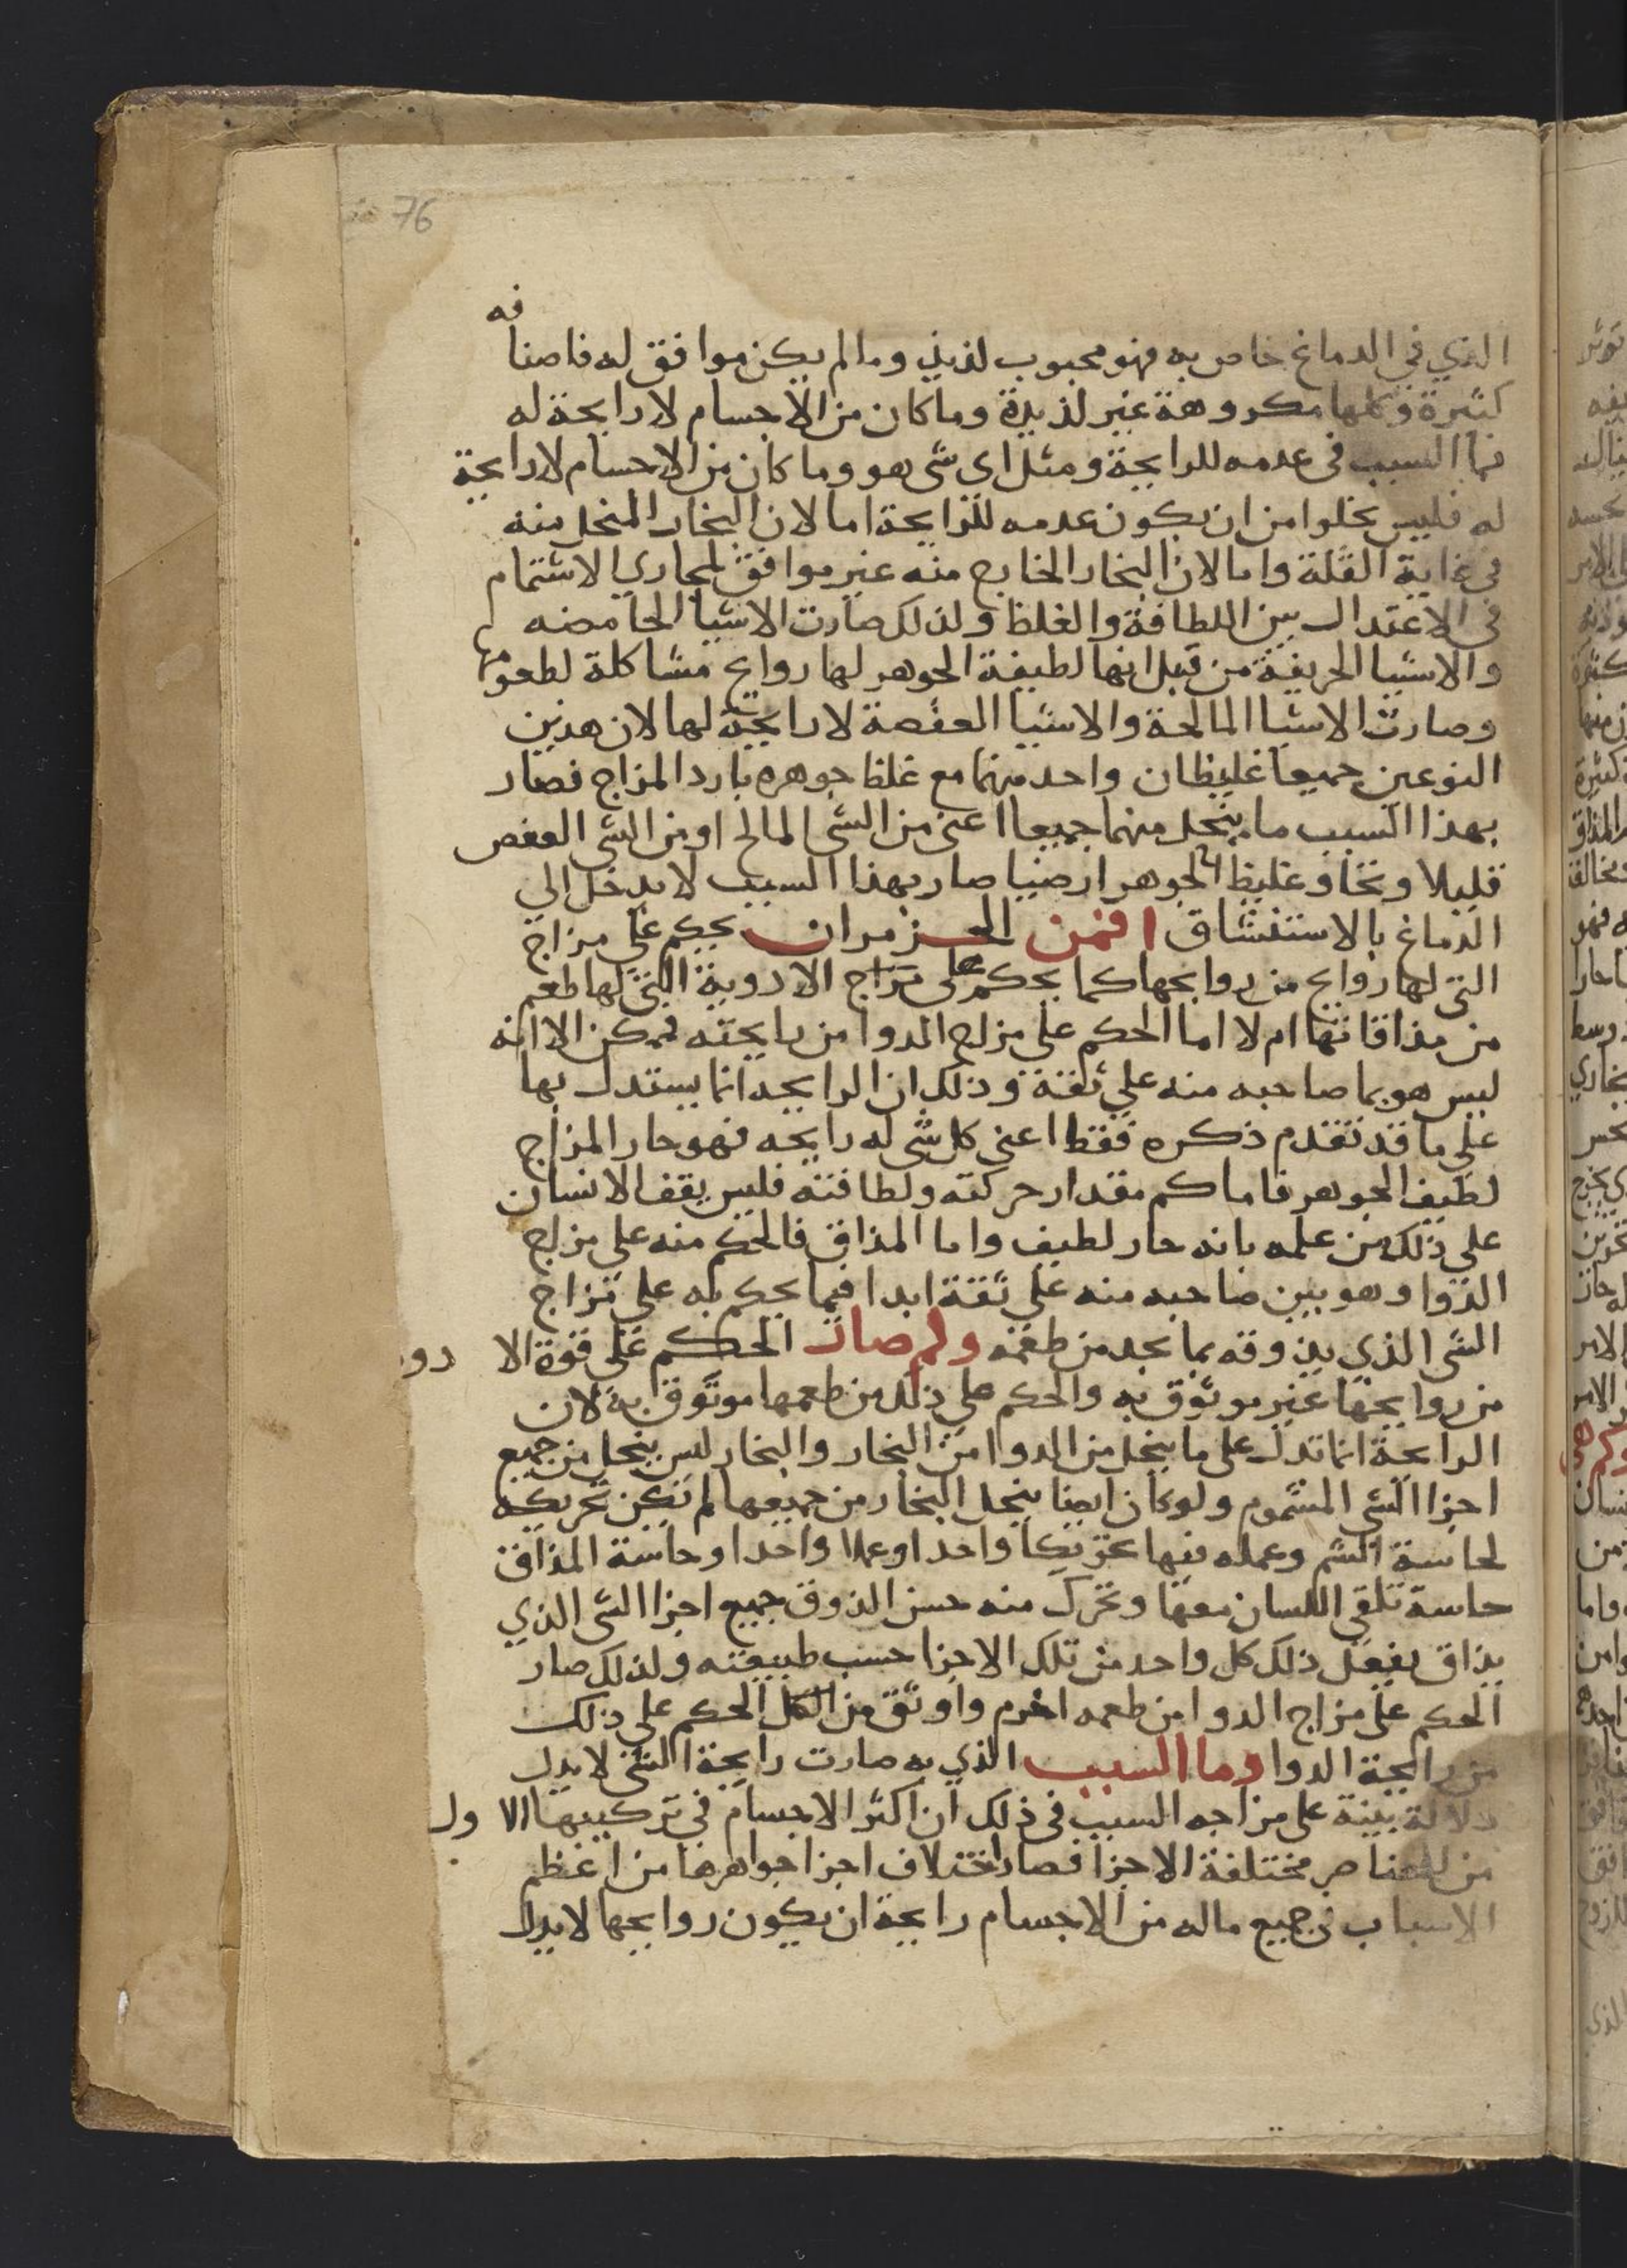 76
الذي في الدماغ خاص به فهو محبوب لذيذ وما لم يكن موافق له فاصنافه
كثيرة وكلها مكروهة غير لذيذة وما كان من الاجسام لا رايحة له
فما السبب في عدمه للرايحة ومثل اي شي هو وما كان من الاجسام لا رايحة
له فليس يخلوا من ان يكون عدمه للرايحة اما لان البخار المنحل منه
في غاية القلة واما لان البخار الخارج منه غير موافق لمجاري الاشتمام
في الاعتدال بين اللطافة والغلظ ولذلك صارت الاشيا الحامضه
والاشيا الحريفة من قبل انها لطيفة الجوهر لها روايح مشاكلة لطعومها
وصارت الاشيا المالحة والاشيا العفصة لا رايحة لها لان هذين
النوعين جميعا غليظان واحد منهما مع غلظ جوهره بارد المزاج فصار
بهذا السبب ما ينحل منهما جميعا اعني من الشي المالح او من الشي العفص
قليلا غليظ الجوهر ارضيا صار بهذا السبب لا يدخل الي
الدماغ بالاستنشاق افمن الحزم ان يحكم علي مزاج
التي لها روايح من روايحها كما يحكم على مزاج الادوية التي لها طعم
من مذاقاتها ام لا اما الحكم علي مزاج الدوا من رايحته فممكن الا انه
ليس هو بما صاحبه منه علي ثقة وذلك ان الرايحه انما يستدل بها
علي ما قد تقدم ذكره فقط اعني كل شي له رايحه فهو حار المزاج
لطيف الجوهر فاما كم مقدار حركته ولطافته فليس يقف الانسان
علي ذلك من علمه بانه حار لطيف واما المذاق فالحكم منه علي مزاج
الدوا وهو بين صاحبه منه علي ثقة ابدا فيما يحكم به علي مزاج
الشي الذي يذوقه بما يجد من طعمه ولم صار الحكم علي قوة الا دو
من روايحها غير موثوق به والحكم علي ذلك من طعمها موثوق به لان
الرايحة انما تدل علي ما ينحل من الدوا من البخار والبخار ليس ينحل من جميع
اجزا الشي المشموم ولو كان ايضا ينحل البخار من جميعها لم تكن تحريكه
لحاسة الشم وعمله فيها تحريكا واحدا وعملا واحدا وحاسة المذاق
حاسة تلقي اللسان معها وتحرك منه حسن الذوق جميع اجزا الشي الذي
يذاق يفعل ذلك كل واحد من تلك الاجزا حسب طبيعته ولذلك صار
الحكم علي مزاج الدوا من طعمه احزم واوثق من الحكم علي ذلك
من رايحة الدوا وما السبب الذي به صارت رايحة الشي لا يدل
دلالة بينة علي مزاجه السبب في ذلك ان اكثر الاجسام في تركيبها الا ول
من العناصر مختلفة الاجزا فصار اختلاف اجزا جواهرها من اعظم
الاسباب في جميع ماله من الاجسام رايحة ان يكون روايحها لا يدل